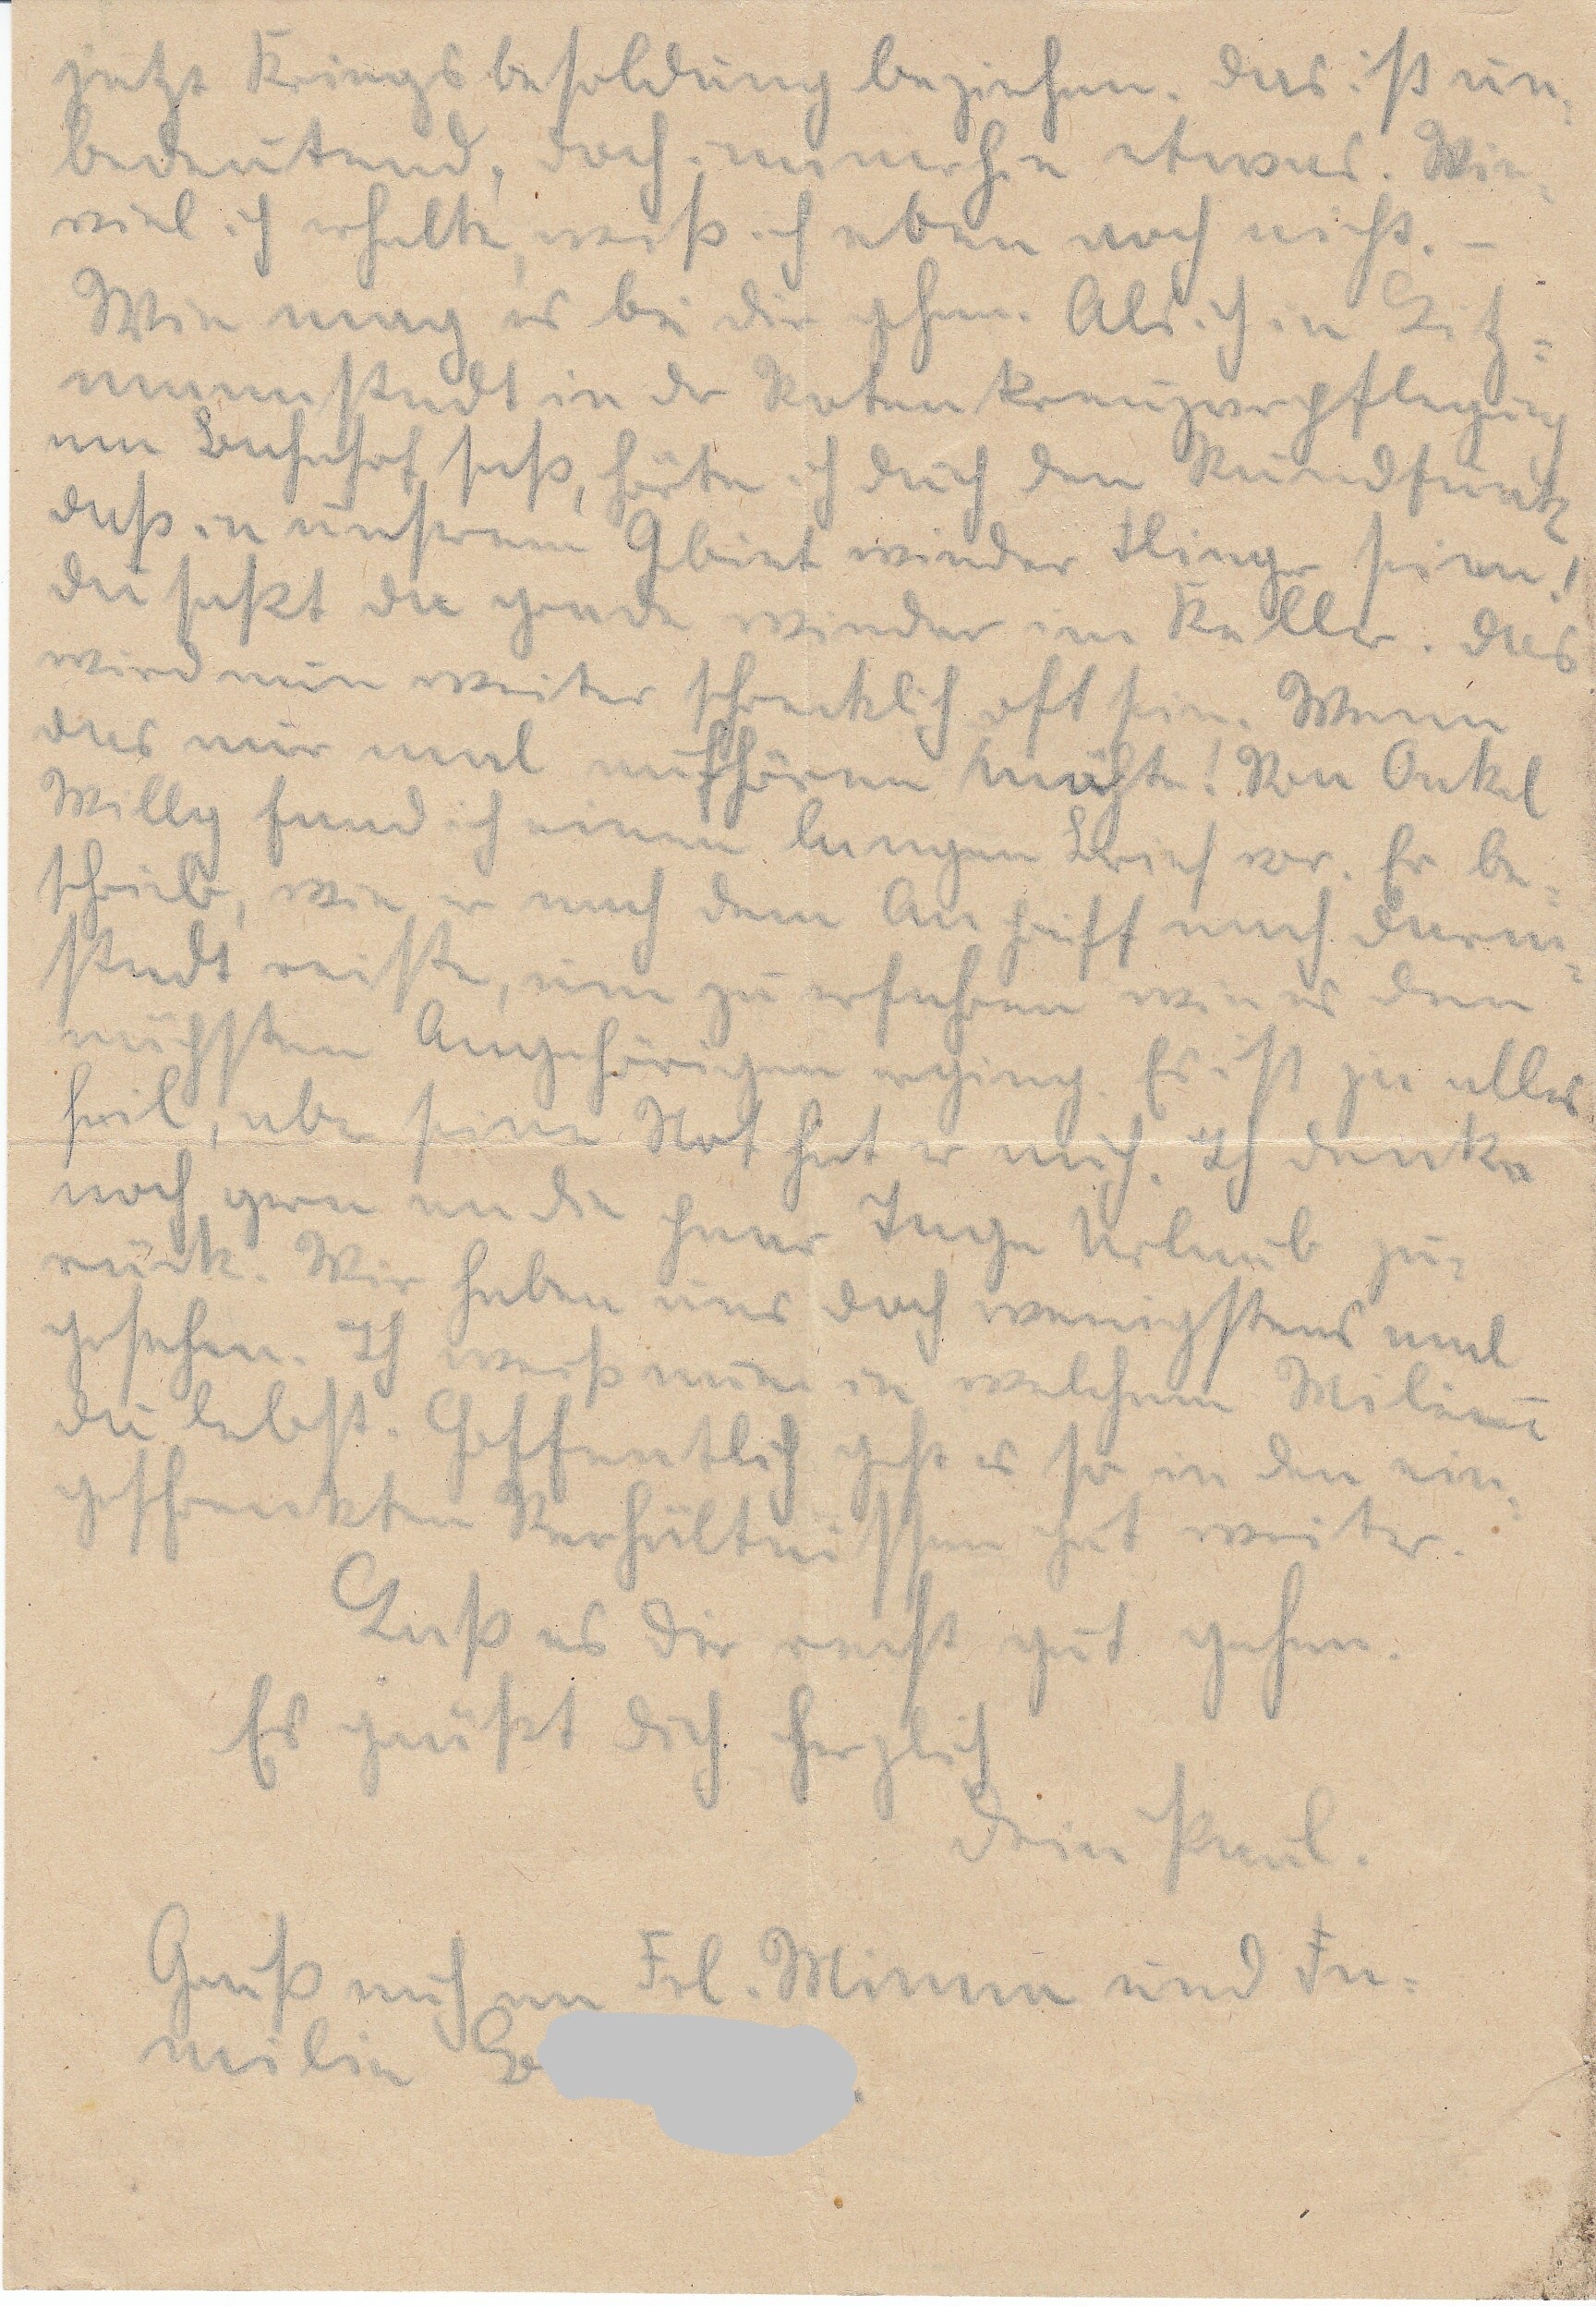 jetzt Kriegsbesoldung beziehen. Das ist un=
bedeutend, doch immerhin etwas. Wie=
viel ich erhalte, weiß ich eben noch nicht. –
Wie mag es bei dir gehen. Als ich in Litz=
mannstadt in der Rotenkreuzverpflegung
am Bahnhof saß, hörte ich durch den Rundfunk
daß in unserem Gebiet wieder Flieger seien!
Du saßt da grade wieder im Keller. Das
wird nun weiter schrecklich oft sein. Wenn
das nur mal aufhören möchte! Von Onkel
Willy fand ich einen langen Brief vor. Er be=
schrieb, wie er nach dem Angriff nach Darm=
stadt reiste, um zu erfahren wie es den
nächsten Angehörigen erging. Es ist ja alles
heil, aber seine Not hat er auch. Ich denke
noch gern an die paar Tage Urlaub zu=
rück. Wir haben uns doch wenigstens mal
gesehen. Ich weiß nun in welchem Milieu
du lebst. Hoffentlich geht es so in den ein=
geschränkten Verhältnissen gut weiter.
Laß es dir recht gut gehen.
Es grüßt dich herzlich
Dein Paul.
Gruß auch an Frl. Minna und Fa=
milie